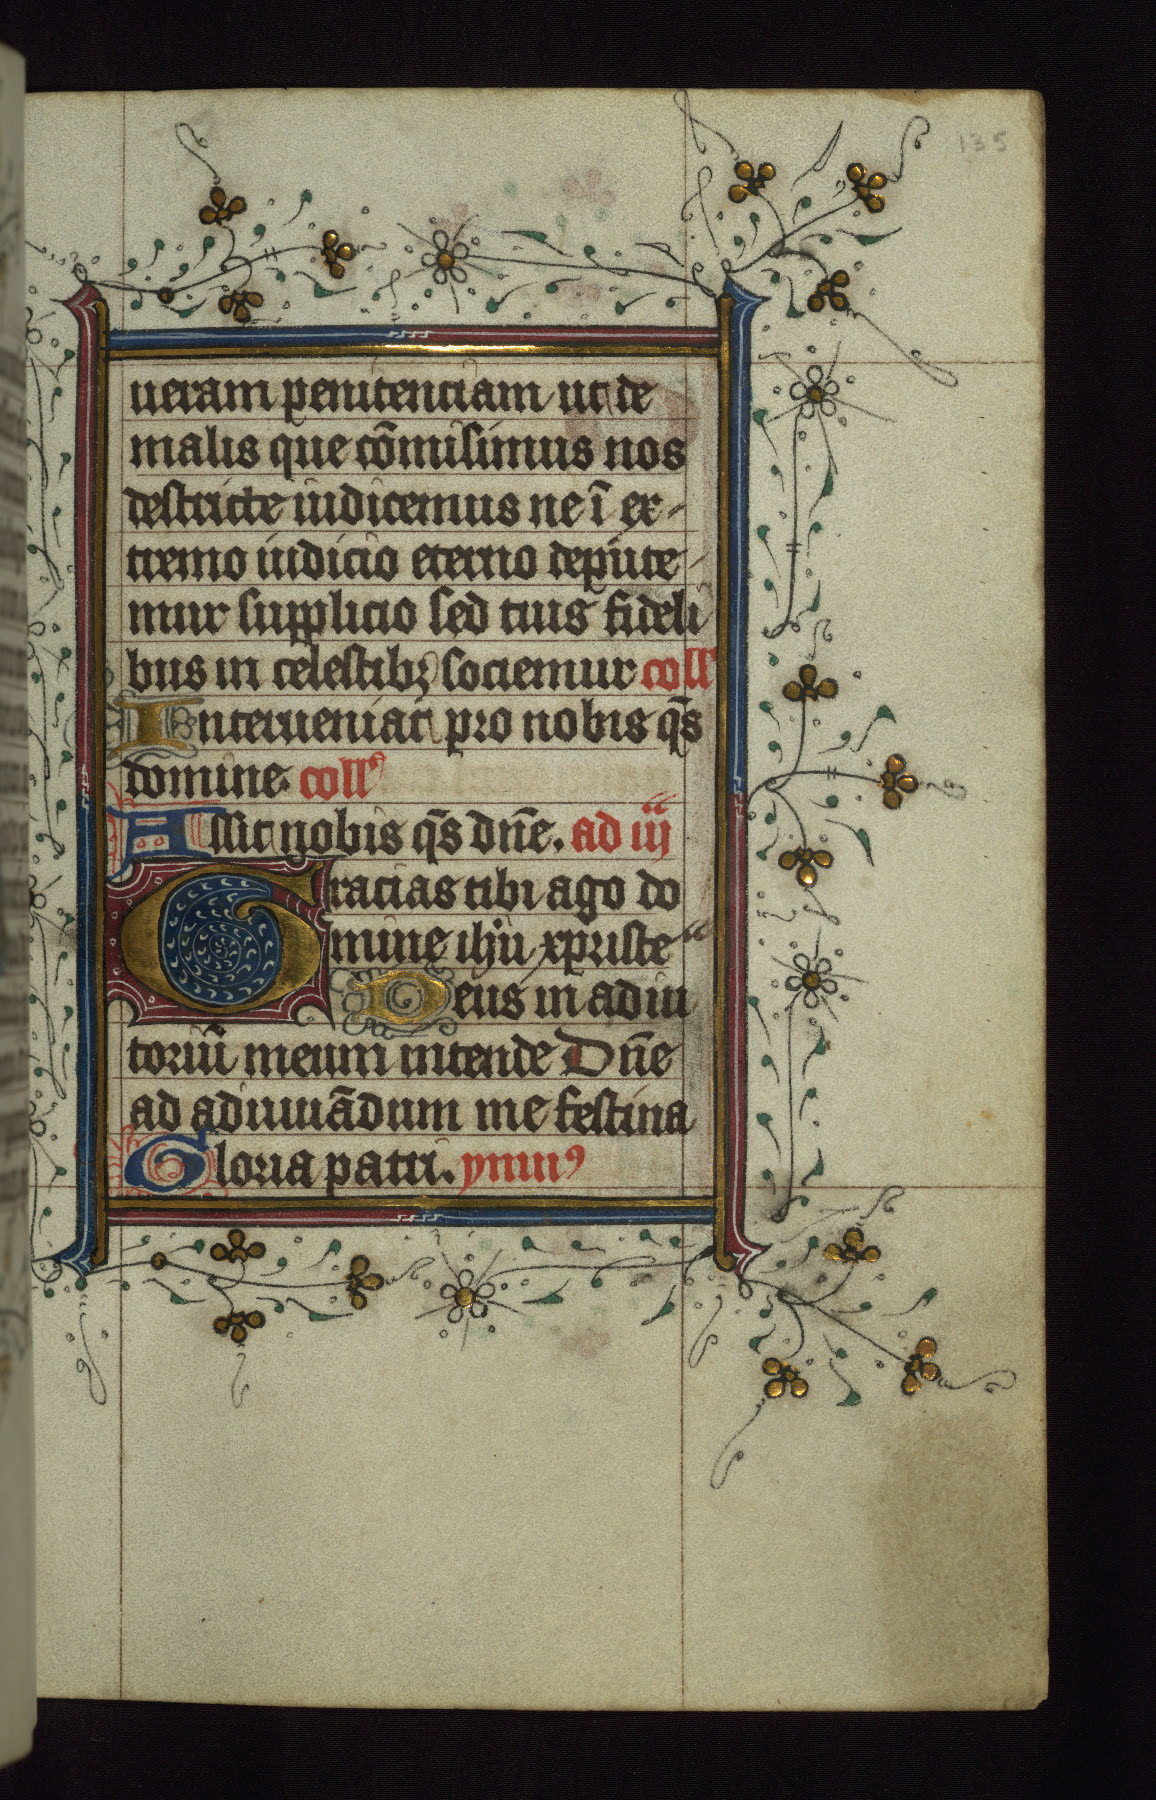 135
ueram penitenciam ut de
malis que cōmisimus nos
destricte iudicemus ne ī ex-
tremo iudicio eterno depute-
mur supplicio sed tuis fideli
bus in celestibꝫ sociemur coll'
Interueniat pro nobis qs̄
domine. collꝰ
Assit nobis qs̄ dn̄e. ad iij
Gracias tibi ago do
mine ihū xpriste
Deus in adiu
toriū meum intende Dn̄e
ad adiuuādum me festina
Gloria patri. ymnꝰ